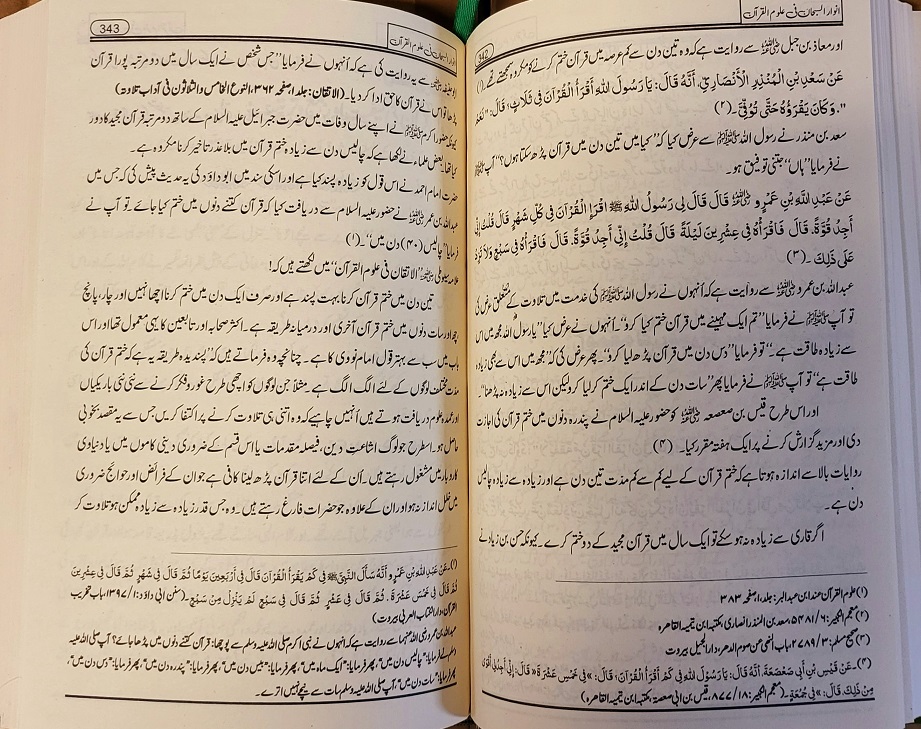 انوار السبحان فی علوم القرآن
342
اور معاذ بن جبل ؓ سے روایت ہے کہ وہ تین دن سے کم عرصہ میں قرآن ختم کرنے کو مکروہ سمجھتے تھے۔(۱)
عَنْ سَعْدِ بْنِ الْمُنْذِرِ الْأَنْصَارِيِّ، أَنَّهُ قَالَ: يَا رَسُولَ اللهِ أَقْرَأُ الْقُرْآنَ فِي ثَلَاثٍ، قَالَ: "نَعَمْ
". وَكَانَ يَقْرَؤُهُ حَتَّى تُوُفِّيَ۔ (۲)
سعد بن منذر نے رسول اللہ ﷺ سے عرض کیا کہ "کیا میں تین دن میں قرآن پڑھ سکتا ہوں؟" آپ ﷺ
نے فرمایا "ہاں" جتنی توفیق ہو۔
عَنْ عَبْدِ اللَّهِ بْنِ عَمْرٍو ؓ قَالَ قَالَ لِي رَسُولُ اللَّهِ ﷺ اقْرَإِ الْقُرْآنَ فِي كُلِّ شَهْرٍ قَالَ قُلْتُ إِنِّي
أَجِدُ قُوَّةً. قَالَ فَاقْرَأْهُ فِي عِشْرِينَ لَيْلَةً قَالَ قُلْتُ إِنِّي أَجِدُ قُوَّةً. قَالَ فَاقْرَأْهُ فِي سَبْعٍ وَلَا تَزِدْ
عَلَى ذَلِكَ۔ (۳)
عبداللہ بن عمرو ؓ سے روایت ہے کہ اُنہوں نے رسول اللہ ﷺ کی خدمت میں تلاوت کے متعلق عرض کی
تو آپ ﷺ نے فرمایا "تم ایک مہینے میں قرآن ختم کیا کرو"۔ اُنہوں نے عرض کیا "یا رسول اللہ مجھ میں اس
سے زیادہ طاقت ہے۔" تو فرمایا "دس دن میں قرآن پڑھ لیا کرو"۔ پھر عرض کی کہ "مجھ میں اس سے بھی زیادہ
طاقت ہے" تو آپ ﷺ نے فرمایا پھر "سات دن کے اندر ایک ختم کر لیا کرو لیکن اس سے زیادہ نہ پڑھنا"۔
اور اس طرح قیس بن صعصعہ ؓ کو حضور علیہ السلام نے پندرہ دنوں میں ختم قرآن کی اجازت
دی اور مزید گزارش کرنے پر ایک ہفتہ مقرر کیا۔ (۴)
روایات بالا سے اندازہ ہوتا ہے کہ ختم قرآن کے لیے کم سے کم مدت تین دن ہے اور زیادہ سے زیادہ چالیس
دن ہے۔
اگر قاری سے زیادہ نہ ہو سکے تو ایک سال میں قرآن مجید کے دو ختم کرے۔ کیونکہ حسن بن زیاد نے
(۱) علوم القرآن عند ابن عبد البر: جلد ۱، صفحہ ۳۸۳
(۲) معجم الکبیر: ۶/ ۵۴۸۱، سعد بن المنذر انصاری، مکتبہ ابن تیمیہ القاهره
(۳) صحیح مسلم: ۳/ ۲۷۸۹، باب النھی عن صوم الدھر، دار الجیل بیروت
(۴)۔ عَنْ قَيْسِ بْنِ أَبِي صَعْصَعَةَ، أَنَّهُ قَالَ: يَا رَسُولَ اللهِ فِي كَمْ أَقْرَأُ الْقُرْآنَ؟، قَالَ: «فِي خَمْسَ عَشْرَةَ» قَالَ: إِنِّي أَجِدُنِي أَقْوَى
مِنْ ذَلِكَ، قَالَ: «فِي جُمُعَةٍ»۔ (معجم الکبیر: ۱۸/ ۸۷۷، قیس بن ابی صعصعۃ، مکتبہ ابن تیمیہ القاهره)
343
انوار السبحان فی علوم القرآن
ابوحنیفہ ؒ سے یہ روایت کی ہے کہ اُنہوں نے فرمایا "جس شخص نے ایک سال میں دو مرتبہ پورا قرآن
پڑھا تو اس نے قرآن کا حق ادا کر دیا۔ (الاتقان: جلد ا صفحہ ۳۶۲، النوع الخامس والثلاثون فی آداب تلاوتہ)
کیونکہ حضور اکرم ﷺ نے اپنے سال وفات میں حضرت جبرائیل علیہ السلام کے ساتھ دو مرتبہ قرآن مجید کا دور
کیا تھا۔ بعض علماء نے لکھا ہے کہ چالیس دن سے زیادہ ختم قرآن میں بلا عذر تاخیر کرنا مکروہ ہے۔
حضرت امام احمد نے اس قول کو زیادہ پسند کیا ہے اور اسکی سند میں ابو داؤد کی یہ حدیث پیش کی کہ جس میں
عبداللہ بن عمر ؓ نے حضور علیہ السلام سے دریافت کیا کہ قرآن کتنے دنوں میں ختم کیا جائے تو آپ نے
فرمایا "چالیس (۴۰) دن میں"۔ (۱)
علامہ سیوطی ؒ "الاتقان فی علوم القرآن" میں لکھتے ہیں کہ!
تین دن میں ختم قرآن کرنا بہت پسند ہے اور صرف ایک دن میں ختم کرنا اچھا نہیں اور چار، پانچ
چھ اور سات دنوں میں ختم قرآن آخری اور درمیانہ طریقہ ہے۔ اکثر صحابہ اور تابعین کا یہی معمول تھا اور اس
باب میں سب سے بہتر قول امام نووی کا ہے۔ چنانچہ وہ فرماتے ہیں کہ "پسندیدہ طریقہ یہ ہے کہ ختم قرآن کی
مدت مختلف لوگوں کے لئے الگ الگ ہے مثلاً جن لوگوں کو اچھی طرح غور و فکر کرنے سے نئی نئی باریکیاں
اور عمدہ علوم دریافت ہوتے ہیں اُنہیں چاہیے کہ وہ اتنی ہی تلاوت کرنے پر اکتفا کریں جس سے یہ مقصد بخوبی
حاصل ہو۔ اسطرح جو لوگ اشاعت دین، فیصلہ مقدمات یا اس قسم کے ضروری دینی کاموں میں یا دنیاوی
کاروبار میں مشغول رہتے ہیں۔ اُن کے لئے اتنا قرآن پڑھ لینا کافی ہے جو ان کے فرائض اور حوائج ضروری
میں خلل انداز نہ ہو اور ان کے علاوہ جو حضرات فارغ رہتے ہیں۔ وہ جس قدر زیادہ سے زیادہ ممکن ہو تلاوت کر
(۱)۔ عَنْ عَبْدِ اللَّهِ بْنِ عَمْرٍو أَنَّهُ سَأَلَ النَّبِيَّ ﷺ فِي كَمْ يَقْرَأُ الْقُرْآنَ قَالَ فِي أَرْبَعِينَ يَوْمًا ثُمَّ قَالَ فِي شَهْرٍ ثُمَّ قَالَ فِي عِشْرِينَ
ثُمَّ قَالَ فِي خَمْسَ عَشْرَةَ. ثُمَّ قَالَ فِي عَشْرٍ ثُمَّ قَالَ فِي سَبْعٍ لَمْ يَنْزِلْ مِنْ سَبْعٍ۔ (سنن ابی داؤد: ۱/ ۱۳۹۷، باب تحزیب
القرآن، دار الکتاب العربی بیروت)
عبداللہ بن عمرو رضی اللہ عنہما سے روایت ہے کہ انہوں نے نبی اکرم صلی اللہ علیہ وسلم سے پوچھا: قرآن کتنے دنوں میں پڑھا جائے؟ آپ صلی اللہ علیہ
وسلم نے فرمایا: "چالیس دن میں"، پھر فرمایا: "ایک ماہ میں"، پھر فرمایا: "بیس دن میں"، پھر فرمایا: "پندرہ دن میں"، پھر فرمایا: "دس دن میں"،
پھر فرمایا: "سات دن میں"، آپ صلی اللہ علیہ وسلم سات سے نیچے نہیں اترے۔